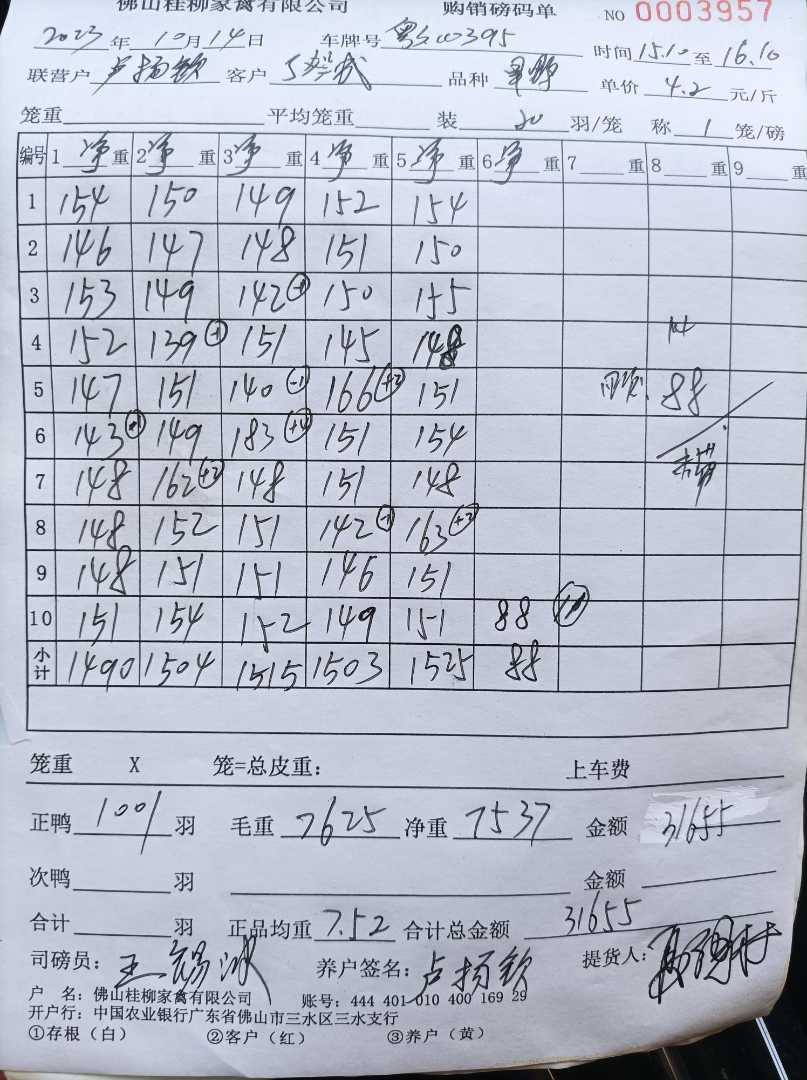 佛山桂柳家禽有限公司 购销磅码单 NO 0003957
2023年10月14日 车牌号 粤 00395 时间15.10至16.10
联营户 卢扬钦 客户 品种 单价 4.2 元/斤
笼重 平均笼重 装 20 羽/笼 称 1 笼/磅
编号 1 净 重 2 净 重 3 净 重 4 净 重 5 净 重 6 净 重 7 重 8 重 9 重
1 154 150 149 152 154
2 146 147 148 151 150
3 153 149 142 -1 150 155
4 152 139 -1 151 145 148
5 147 151 140 -1 166 +2 151 88
6 143 -1 149 183 +4 151 154
7 148 162 +2 148 151 148
8 148 152 151 142 -1 163 +2
9 148 151 151 146 151
10 151 154 152 149 151 88
小计 1490 1504 1515 1503 1525 88
笼重 X 笼=总皮重: 上车费
正鸭 1001 羽 毛重 7625 净重 7537 金额 31655
次鸭 羽 金额
合计 羽 正品均重 7.52 合计总金额 31655
司磅员: 王锡冰 养户签名: 卢扬钦 提货人:
户 名: 佛山桂柳家禽有限公司 账号: 444 401 010 400 169 29
开户行: 中国农业银行广东省佛山市三水区三水支行
①存根（白） ②客户（红） ③养户（黄）